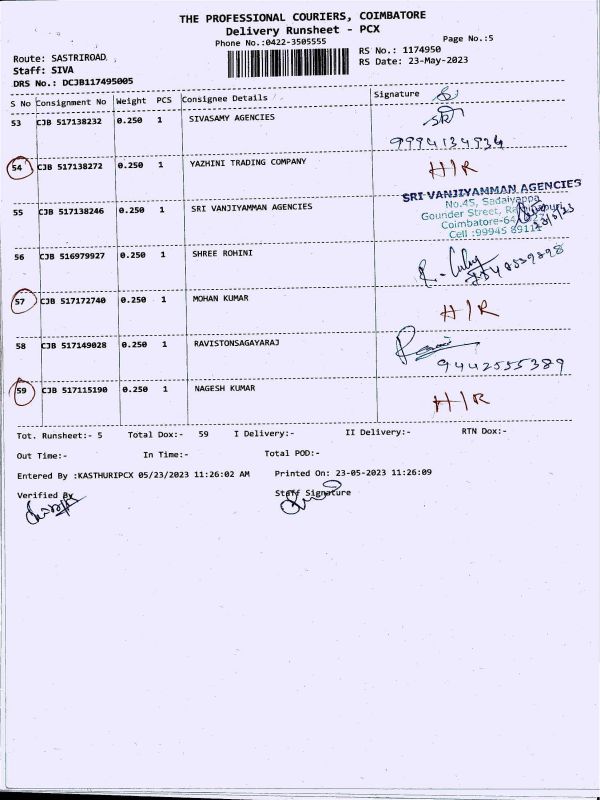 THE PROFESSIONAL COURIERS, COIMBATORE
Delivery Runsheet - PCX
Phone No.:0422-3505555
Page No.:5
Route: SASTRIROAD
RS No.: 1174950
Staff: SIVA
RS Date: 23-May-2023
DRS No.: DCJB117495005
S No Consignment No Weight PCS Consignee Details Signature
53 CJB 517138232 0.250 1 SIVASAMY AGENCIES
9994134934
54 CJB 517138272 0.250 1 YAZHINI TRADING COMPANY H/R
SRI VANJIYAMMAN AGENCIES
No.45, Sadaiyappa
55 CJB 517138246 0.250 1 SRI VANJIYAMMAN AGENCIES
Gounder Street,
Coimbatore-64
Cell :99945
56 CJB 516979927 0.250 1 SHREE ROHINI
57 CJB 517172740 0.250 1 MOHAN KUMAR H/R
58 CJB 517149028 0.250 1 RAVISTONSAGAYARAJ
9442555389
59 CJB 517115190 0.250 1 NAGESH KUMAR H/R
Tot. Runsheet:- 5 Total Dox:- 59 I Delivery:- II Delivery:- RTN Dox:-
Out Time:- In Time:- Total POD:-
Entered By :KASTHURIPCX 05/23/2023 11:26:02 AM Printed On: 23-05-2023 11:26:09
Verified By Staff Signature